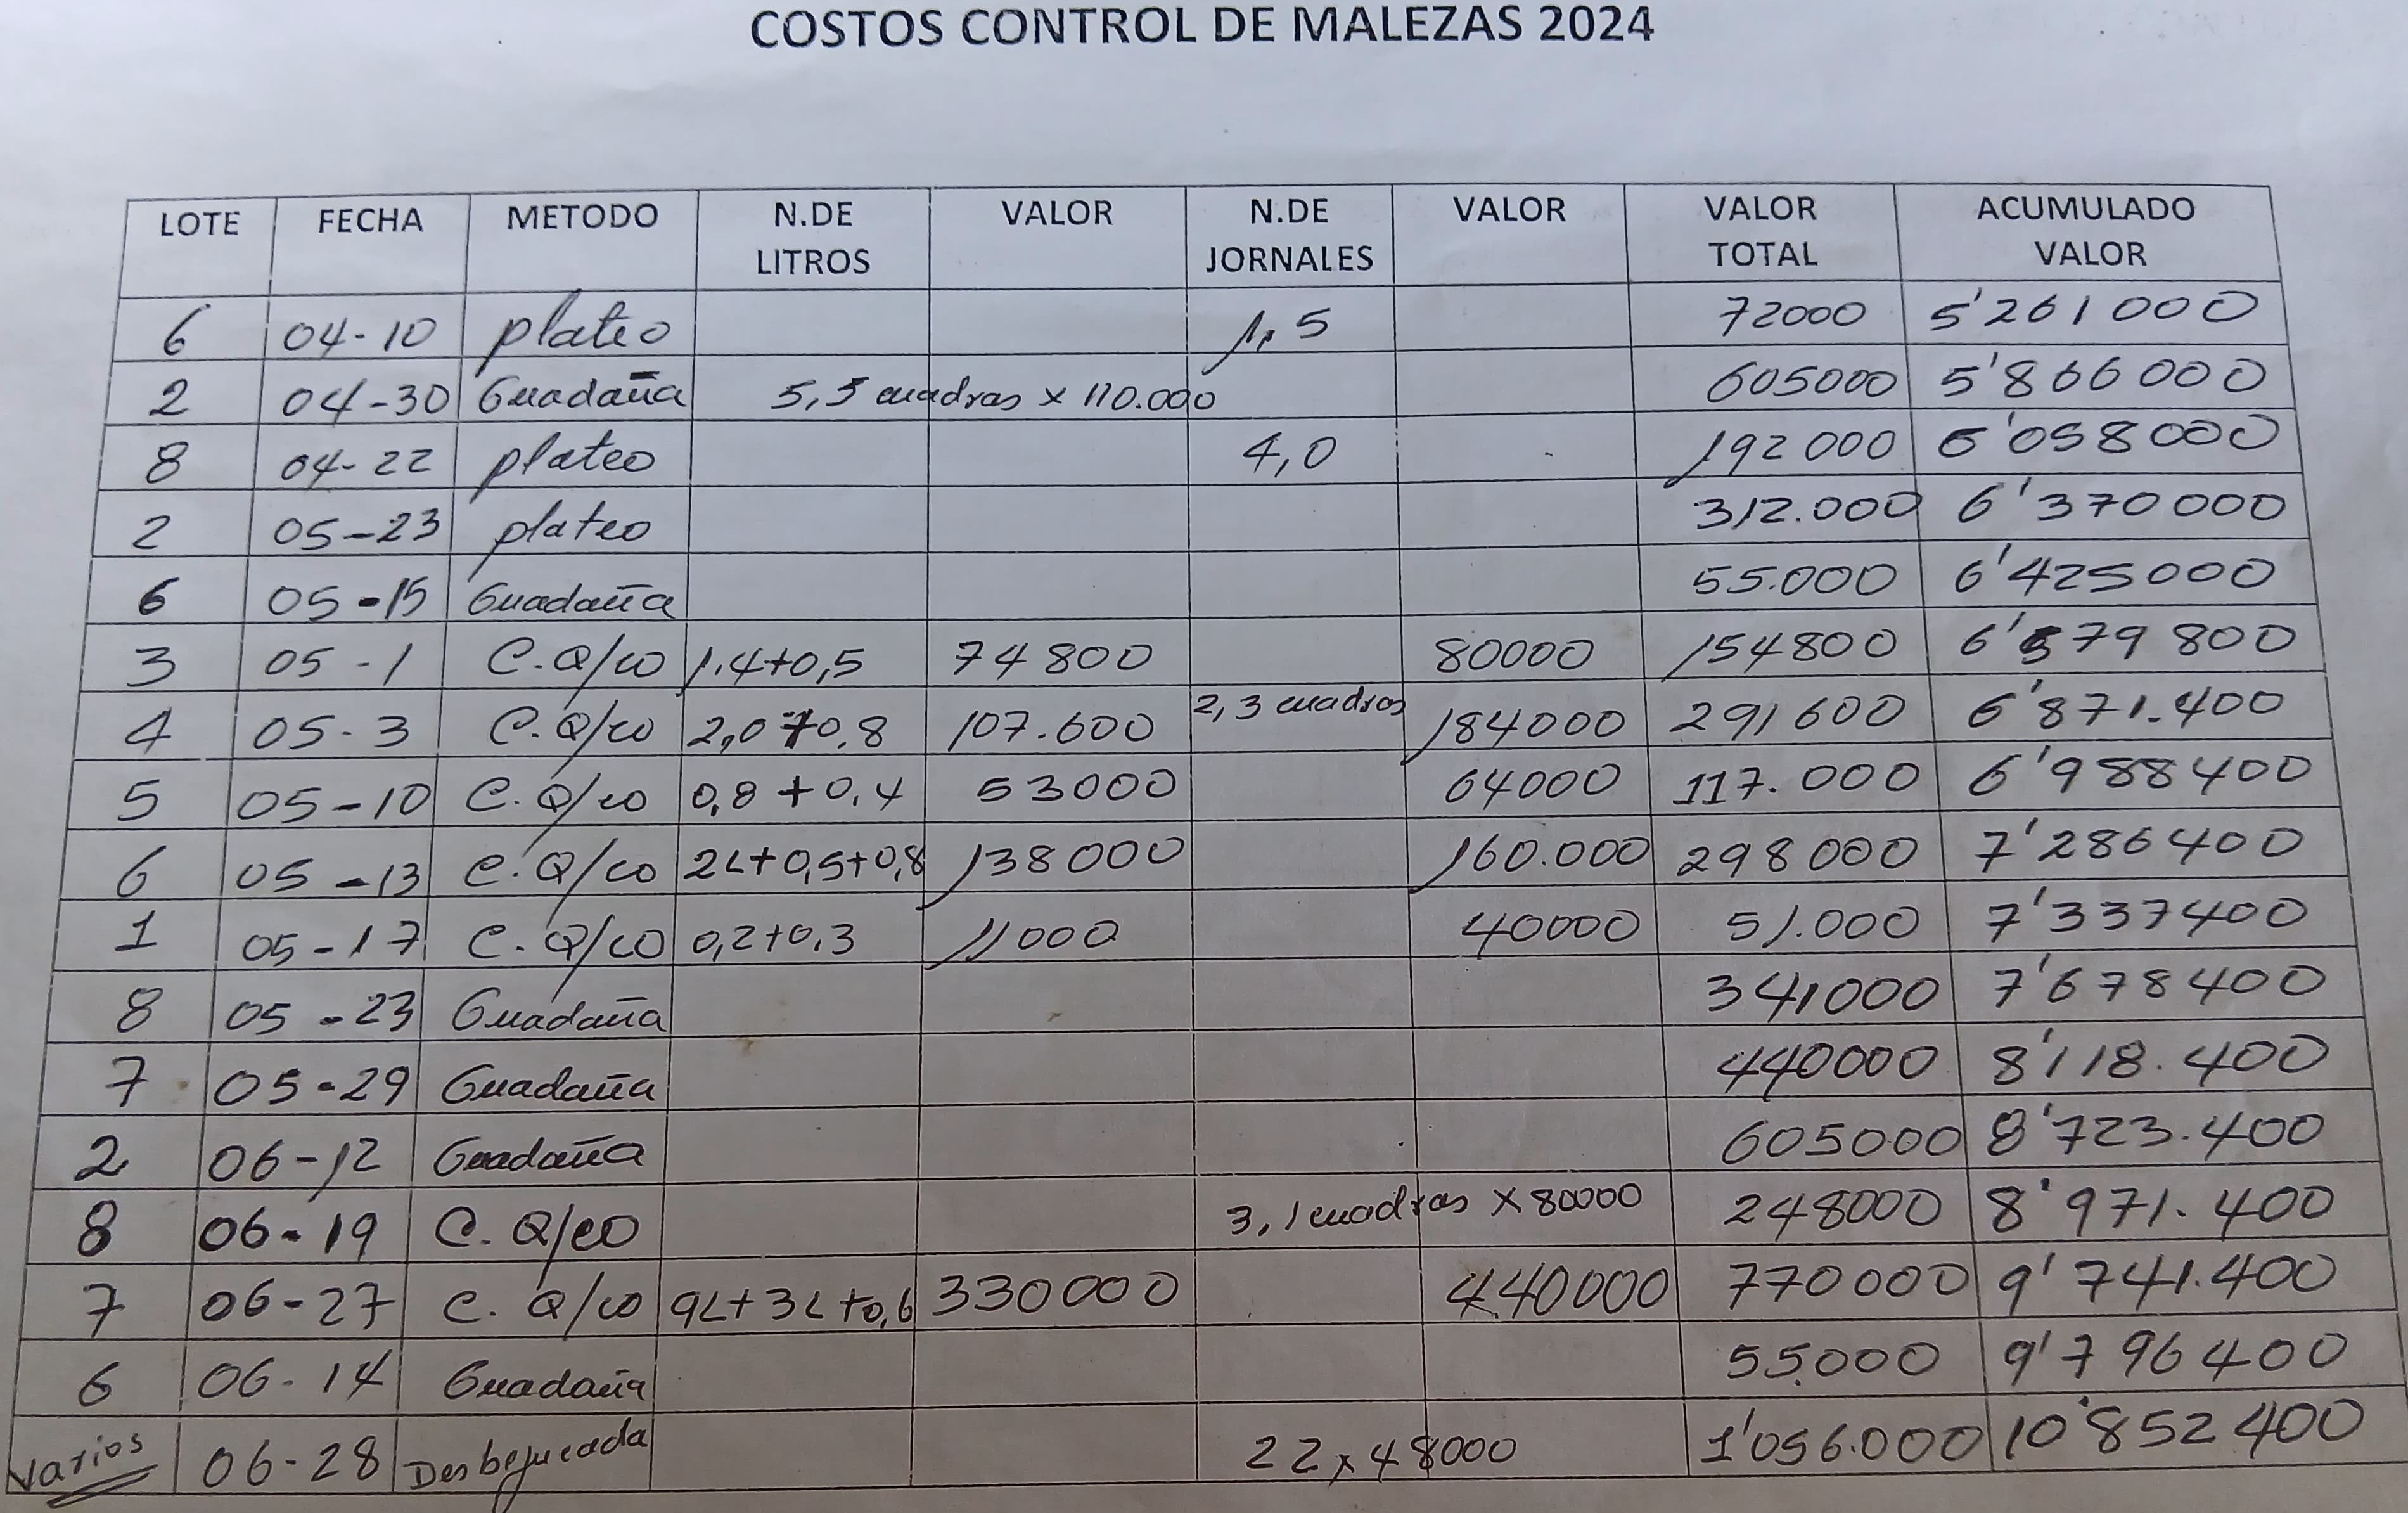 COSTOS CONTROL DE MALEZAS 2024
LOTE FECHA METODO N.DE LITROS VALOR N.DE JORNALES VALOR VALOR TOTAL ACUMULADO VALOR
6 04-10 plateo 1,5 72000 5'261000
2 04-30 Guadaña 5,5 cuadras x 110.000 605000 5'866000
8 04-22 plateo 4,0 192000 6'058000
2 05-23 plateo 312.000 6'370000
6 05-15 Guadaña 55.000 6'425000
3 05-1 C.Q/co 1.4+0,5 74800 80000 154800 6'579800
4 05-3 C.Q/co 2,0+0,8 107.600 2,3 cuadras 184000 291600 6'871.400
5 05-10 C.Q/co 0,8+0,4 53000 64000 117.000 6'988400
6 05-13 C.Q/co 2L+0,5+0,8 138000 160.000 298000 7'286400
1 05-17 C.Q/co 0,2+0,3 11000 40000 51.000 7'337400
8 05-23 Guadaña 341000 7'678400
7 05-29 Guadaña 440000 8'118.400
2 06-12 Guadaña 605000 8'723.400
8 06-19 C.Q/co 3,1 cuadras x 80000 248000 8'971.400
7 06-27 C.Q/co 9L+3L+0,6 330000 440000 770000 9'741.400
6 06-14 Guadaña 55.000 9'796400
Varios 06-28 Desbejucada 22 x 48000 1'056.000 10'852400